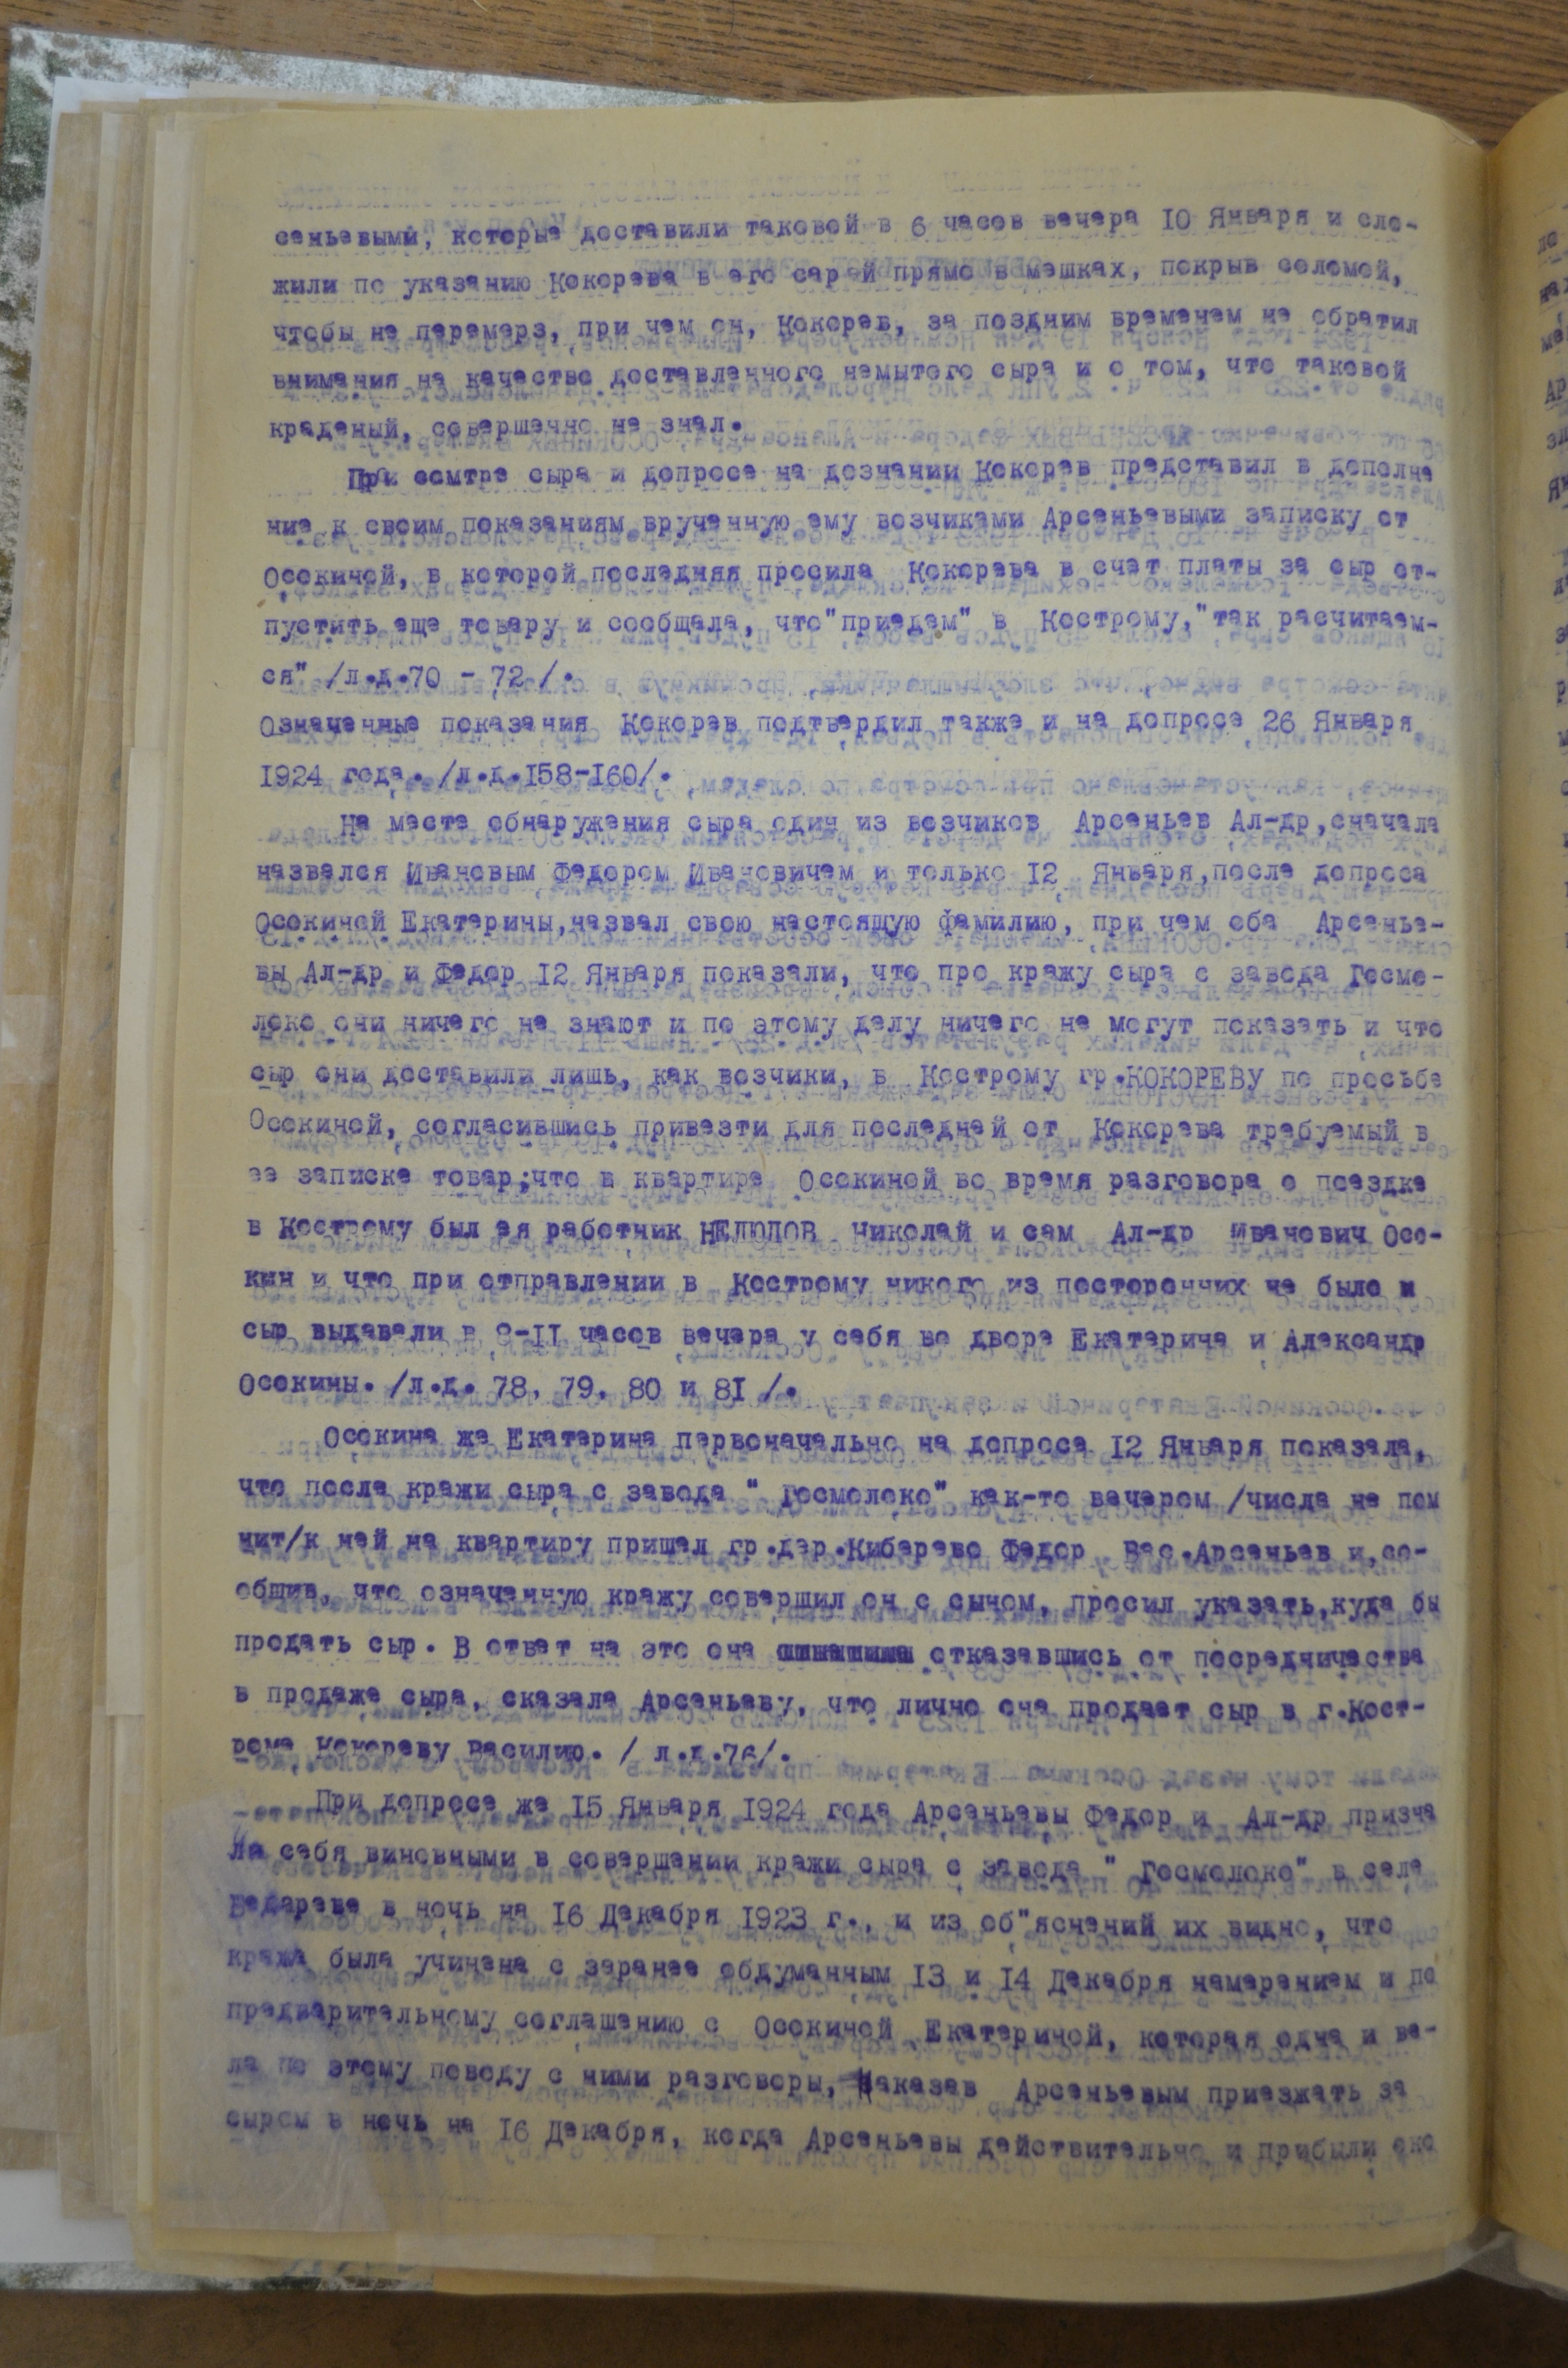 сеньевыми, которые доставили таковой в 6 часов вечера 10 Января и сло-
жили по указанию Кокорева в его сарай прямо в мешках, покрыв соломой,
чтобы не перемерз, при чем он, Кокорев, за поздним временем не обратил
внимания на качество доставленного немытого сыра и о том, что таковой
краденый, совершенно не знал.
При осмтре сыра и допросе на дознании Кокорев представил в дополне
ние к своим показаниям врученную ему возчиками Арсеньевыми записку от
Осокиной, в которой последняя просила Кокорева в счет платы за сыр от-
пустить еще товару и сообщала, что "приедем" в Кострому, "так расчитаем-
ся" /л.д.70 - 72 /.
Означенные показания Кокорев подтвердил также и на допросе 26 Января
1924 года. /л.д.158-160/.
На месте обнаружения сыра один из возчиков Арсеньев Ал-др, сначала
назвался Ивановым Федором Ивановичем и только 12 Января, после допроса
Осокиной Екатерины, назвал свою настоящую фамилию, при чем оба Арсенье-
вы Ал-др и Федор 12 Января показали, что про кражу сыра с завода Госмо-
локо они ничего не знают и по этому делу ничего не могут показать и что
сыр они доставили лишь, как возчики, в Кострому гр.КОКОРЕВУ по просьбе
Осокиной, согласившись привезти для последней от Кокорева требуемый в
ее записке товар; что в квартире Осокиной во время разговора о поездке
в Кострому был ея работник НЕЛЮДОВ Николай и сам Ал-др Иванович Осо-
кин и что при отправлении в Кострому никого из посторонних не было и
сыр выдавали в 9-11 часов вечера у себя во дворе Екатерина и Александр
Осокины. /л.д. 78, 79, 80 и 81 /.
Осокина же Екатерина первоначально на допросе 12 Января показала,
что после кражи сыра с завода " Госмолоко" как-то вечером /числа не пом
нит/к ней на квартиру пришел гр.дер.Киберево Федор Вас.Арсеньев и, со-
общив, что означенную кражу совершил он с сыном, просил указать, куда бы
продать сыр. В ответ на это она отказавшись от посредничества
в продаже сыра, сказала Арсеньеву, что лично она продает сыр в г.Кост-
роме Кокореву Василию. / л.д.76/.
При допросе же 15 Января 1924 года Арсеньевы Федор и Ал-др призна
ли себя виновными в совершении кражи сыра с завода " Госмолоко" в селе
Бедареве в ночь на 16 Декабря 1923 г., и из об"яснений их видно, что
кража была учинена с заранее обдуманным 13 и 14 Декабря намерением и по
предварительному соглашению с Осокиной Екатериной, которая одна и ве-
ла по этому поводу с ними разговоры, наказав Арсеньевым приезжать за
сыром в ночь на 16 Декабря, когда Арсеньевы действительно и прибыли око